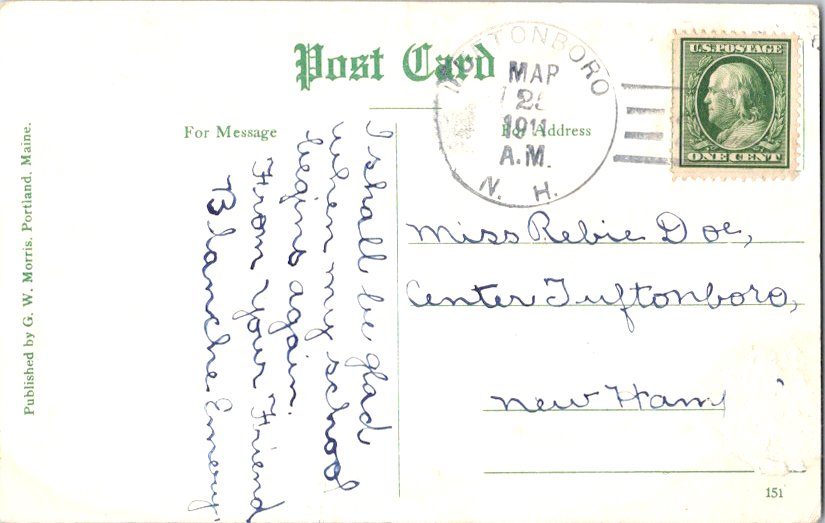 Post Card
For Message
For Address
TUFTONBORO
MAR
1911
A.M.
N. H.
U.S. POSTAGE
ONE CENT
I shall be glad
when my school
begins again.
From your Friend
Blanche Emery.
Miss Rebie Doe,
Center Tuftonboro,
New Ham
Published by G. W. Morris, Portland, Maine.
151